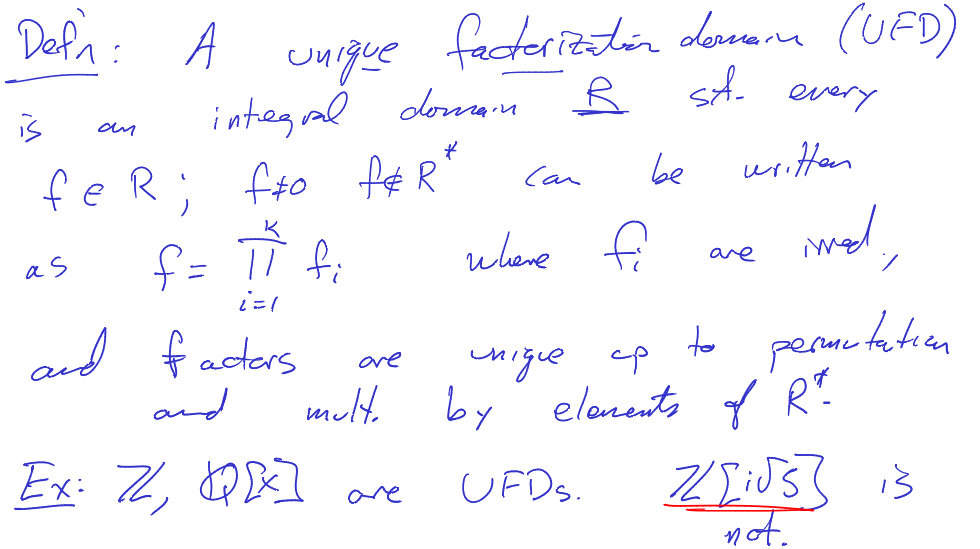 Defn: A unique factorization domain (UFD)
is an integral domain R st. every
f ∈ R; f≠0 f∉R* can be written
as f = ∏_{i=1}^{K} f_i where f_i are irred.,
and factors are unique up to permutation
and mult. by elements of R*.
Ex: ℤ, ℚ[x] are UFDs. ℤ[i√5] is
not.